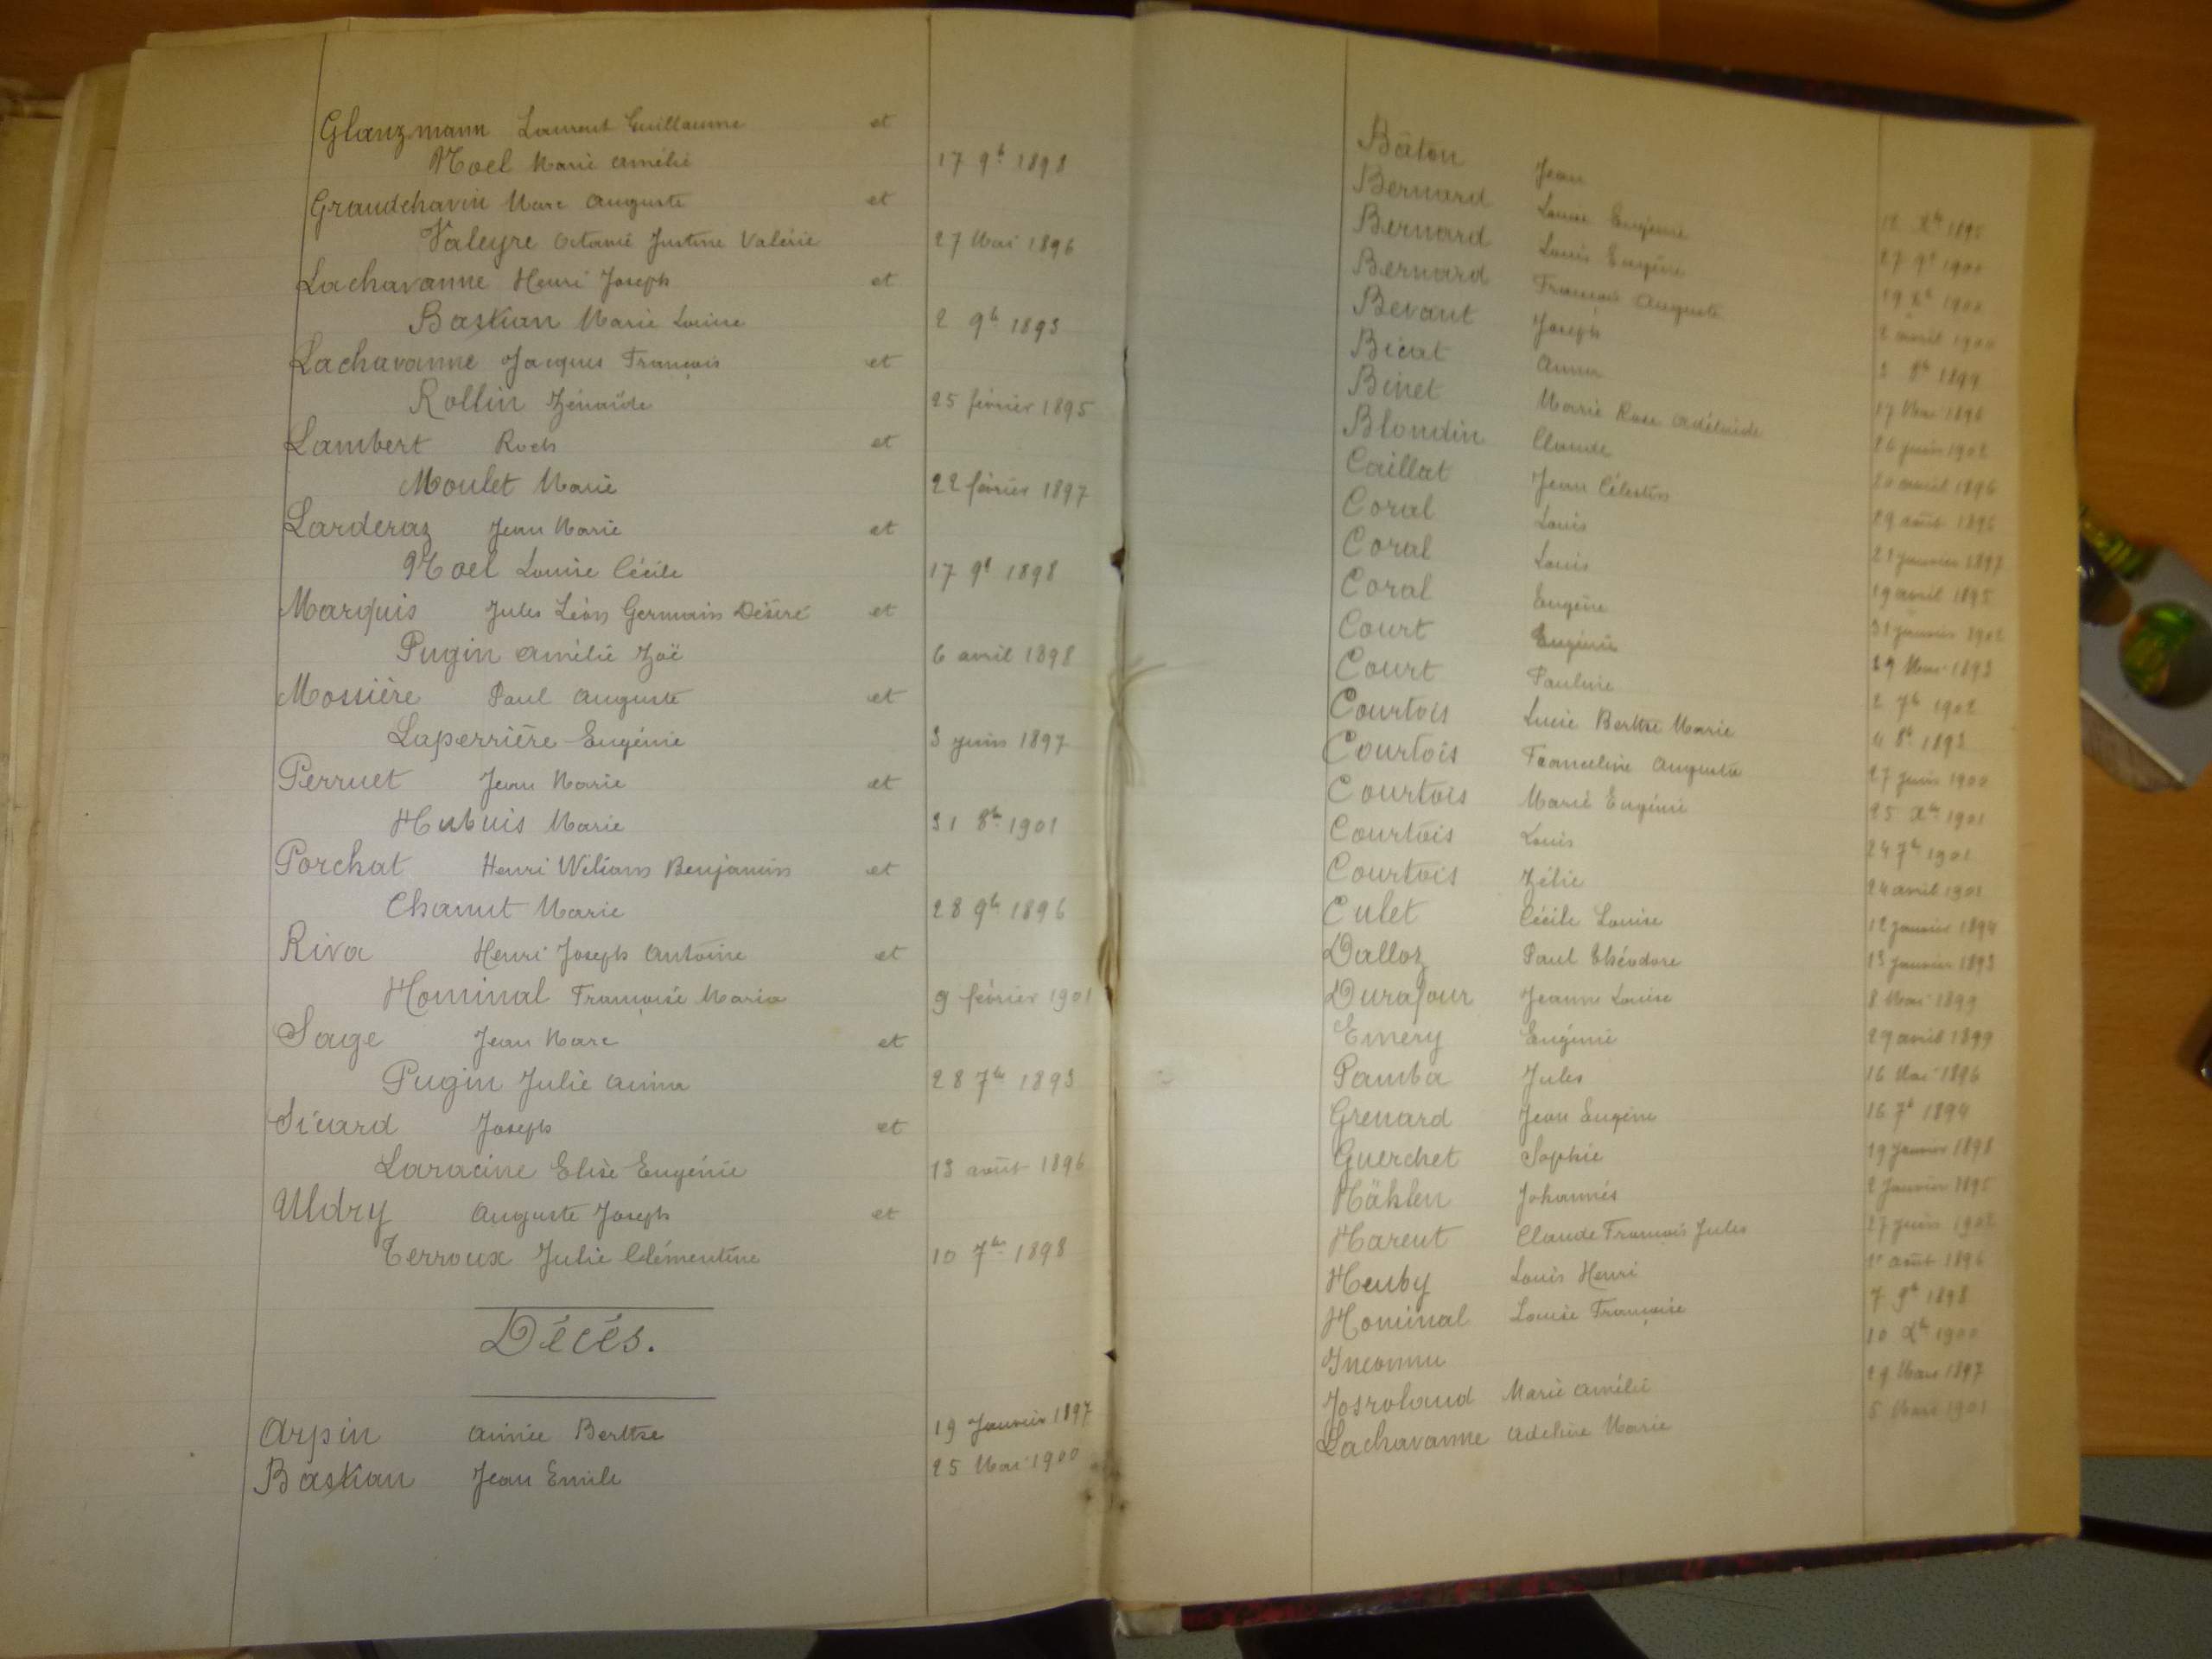 Glanzmann Laurent Guillaume et
Noel Marie Amélie 17 9b 1898
Grandchavin Marc Auguste et
Valeyre Octavie Justine Valérie 27 Mai 1896
Lachavanne Henri Joseph et
Bastian Marie Louise 2 9b 1893
Lachavanne Jacques François et
Rollin Zénaïde 25 février 1895
Lambert Roch et
Moulet Marie 22 février 1897
Larderaz Jean Marie et
Noel Louise Cécile 17 9b 1898
Marquis Jules Léon Germain Désiré et
Pugin Amélie Zoë 6 avril 1898
Mossière Paul Auguste et
Laperrière Eugénie 3 juin 1897
Perruet Jean Marie et
Hubuis Marie 31 8b 1901
Porchat Henri Wiliam Benjamin et
Chanut Marie 28 9b 1896
Riva Henri Joseph Antoine et
Hominal Françoise Maria 9 février 1901
Sage Jean Marc et
Pugin Julie Anna 28 7b 1893
Sicard Joseph et
Laracine Elise Eugénie 13 août 1896
Uldry Auguste Joseph et
Terroux Julie Clémentine 10 7b 1898
Décés.
Arpin Aimée Berthe 19 Janvier 1897
Bastian Jean Emile 25 Mai 1900
Bâton Jean
Bernard Louise Eugénie
Bernard Louis Eugène 27 9b 1900
Bernard François Auguste 19 Xb 1900
Bevant Joseph 2 avril 1900
Bicat Anna 3 8b 1899
Binet Marie Rose Adélaïde 17 1896
Blondin Claude 26 juin 1902
Caillat Jean Célestin 20 avril 1896
Coral Louis 29 août 1896
Coral Louis 21 janvier 1897
Coral Eugène 19 avril 1895
Court Eugénie 31 janvier 1902
Court Pauline 29 1893
Courtois Lucie Berthe Marie 2 7b 1902
Courtois Franceline Augusta 4 8b 1893
Courtois Marie Eugénie 27 juin 1900
Courtois Louis 25 Xb 1901
Courtois Zélie 24 7b 1901
Culet Cécile Louise 24 avril 1901
Dalloz Paul Théodore 12 janvier 1894
Durafour Jeanne Louise 13 janvier 1893
Emery Eugénie 8 Mai 1899
Pamba Jules 29 avril 1899
Grenard Jean Eugène 16 Mai 1896
Guerchet Sophie 16 7b 1894
Hählen Johannès 19 janvier 1898
Harent Claude François Jules 2 Janvier 1895
Heuby Louis Henri 27 juin 1902
Hominal Louise Françoise 1er août 1896
Inconnu 7 9b 1898
Josroland Marie Amélie 10 Xb 1900
Lachavanne Adeline Marie 29 Mars 1897
5 Mars 1901